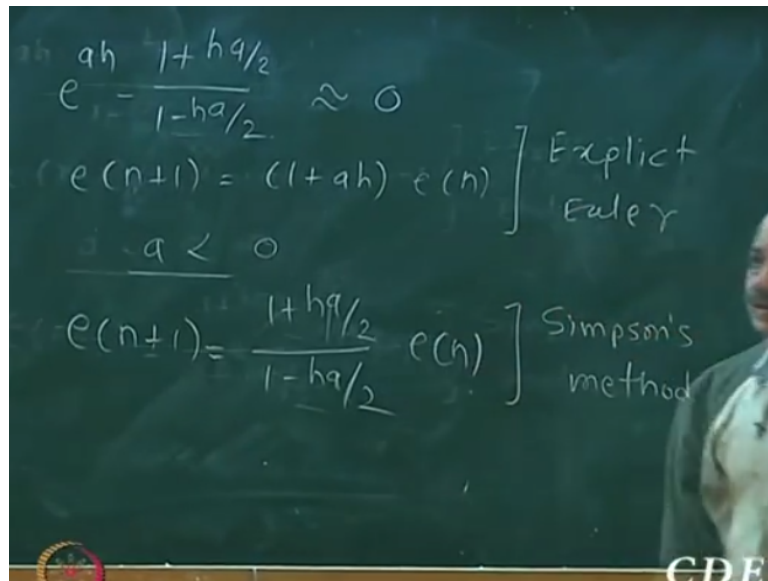 e^ah - (1+ha/2)/(1-ha/2) ≈ 0
e(n+1) = (1+ah) e(n) ] Explict Euler
a < 0
e(n+1) = (1+ha/2)/(1-ha/2) e(n) ] Simpson's method
CDE